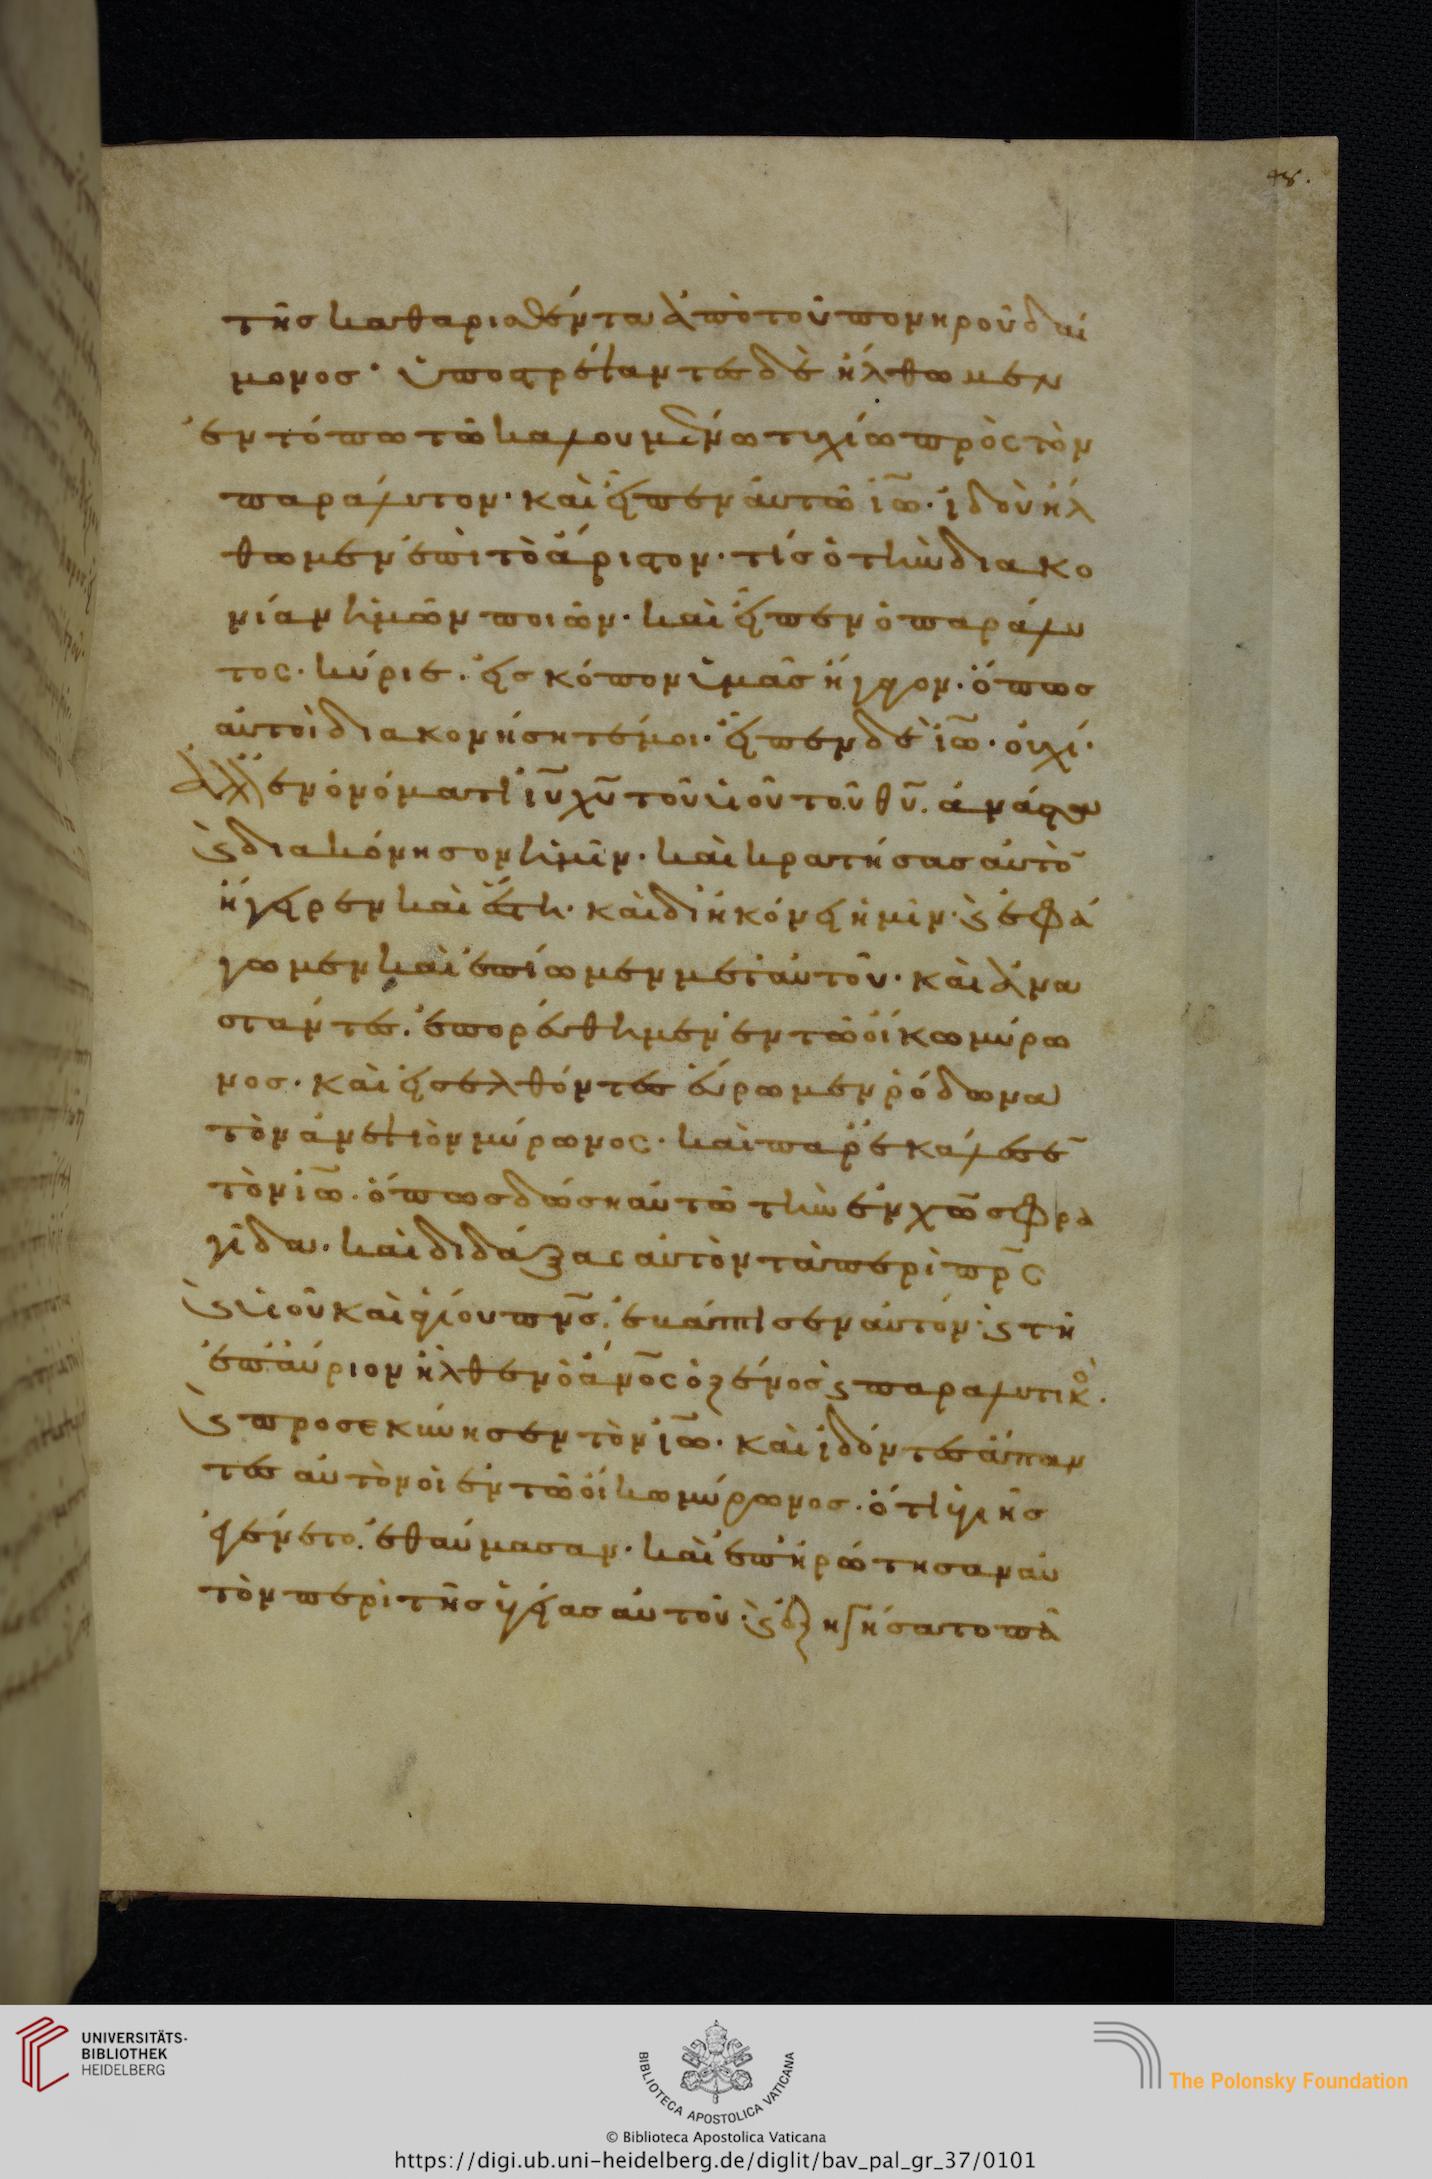 48.
τῆσ καθαρισθέντα ἀπὸ τοῦ πονηροῦ δαί
μονοσ· ὑποστρέψαντεσ δὲ ἤλθωμεν
ἐν τόπω τῶ καλουμένω τιχίω πρὸς τὸν
παράλυτον· καὶ εἶπεν αὐτῶ ἰω̅· ἰδοὺ ἤλ
θωμεν ἐπὶ τὸ ἄριστον· τίσ ὁ τὴν διακο
νίαν ἡμῶν ποιῶν· καὶ εἶπεν ὁ παράλυ
τος· κύριε· εἰσ κόπον ὑμᾶσ ἤγαγον· ὅπωσ
αὐτοὶ διακονήσητέ μοι· εἶπεν δὲ ἰω̅· οὐχί·
ἀλλ' ἐν ὀνόματι ἰυ̅ χυ̅ τοῦ υἱοῦ τοῦ θυ̅. ἀνάστα
ϗ διακόνησον ἡμῖν· καὶ κρατήσασ αὐτὸ̅
ἤγειρεν καὶ ἔστη· καὶ διἠκόνει ἡμῖν· ϗ ἐφά
γωμεν καὶ ἐπίωμεν μετ' αὐτοῦ· καὶ ἀνα
σταντεσ. ἐπορεύθημεν ἐν τῶ οἴκω μύρω
νοσ· καὶ εἰσελθόντεσ εὕρωμεν ῥόδωνα
τὸν ἀνεψιὸν μύρωνος· καὶ παρεκάλεσε̅
τὸν ἰω̅· ὅπωσ δώση αὐτῶ τὴν ἐν χω̅ σφρα
γίδα· καὶ διδάξας αὐτὸν τὰ περὶ πρ̅ς
ϗ υἱοῦ καὶ ἁγίου πνσ̅. ἐβάπτισεν αὐτόν· ϗ τῆ
ἐπαύριον ἦλθεν ὁ ἄνο̅ς ὁ ξένοσ ϗ παραλυτικὸ.
ϗ προσεκύνησεν τὸν ἰω̅· καὶ ἰδόντεσ ἅπαν
τεσ αὐτὸν οἱ ἐν τῶ οἴκω μύρωνοσ· ὅτι ὑγιὴσ
γένετο. ἐθαύμασαν· καὶ ἐπηρώτησαν αὐ
τὸν περὶ τῆσ ὑγείασ αὐτοῦ· ϗ ἐξηγήσατο πᾶ
UNIVERSITÄTS-
BIBLIOTHEK
HEIDELBERG
BIBLIOTECA APOSTOLICA VATICANA
The Polonsky Foundation
© Biblioteca Apostolica Vaticana
https://digi.ub.uni-heidelberg.de/diglit/bav_pal_gr_37/0101